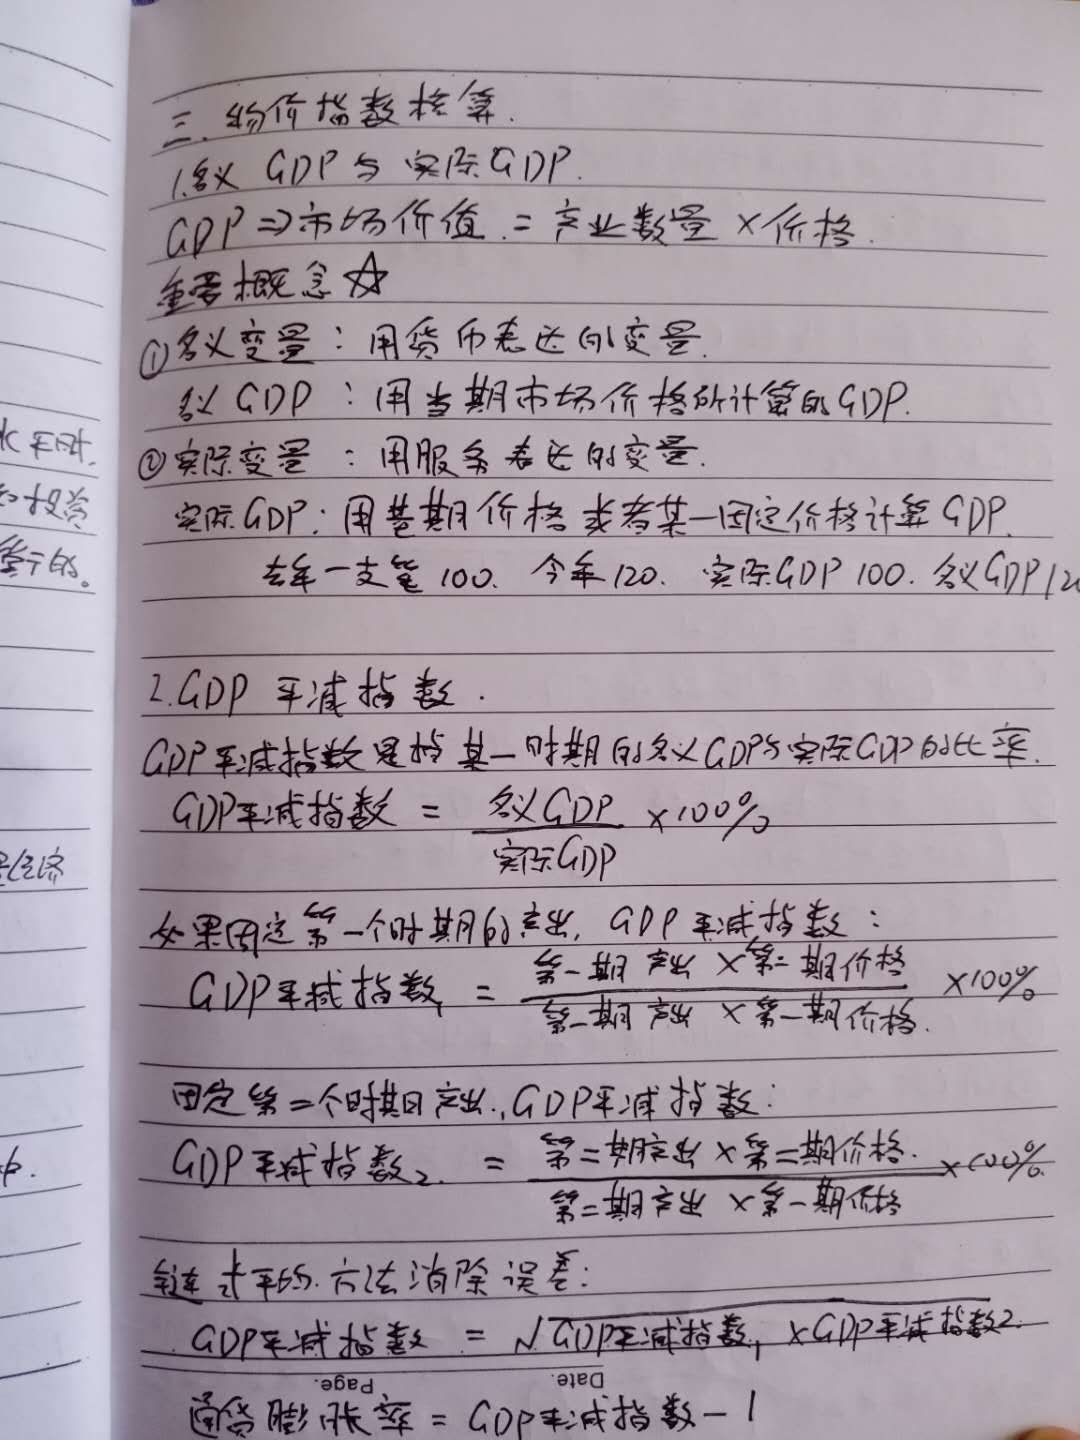 三.物价指数核算.
1.名义 GDP 与 实际GDP.
GDP⇒市场价值.=产业数量×价格.
重要概念☆
①名义变量:用货币表达的变量.
名义GDP:用当期市场价格所计算的GDP.
②实际变量:用服务表达的变量.
实际GDP:用基期价格或者某一固定价格计算GDP.
去年一支笔100. 今年120. 实际GDP 100. 名义GDP 12
2.GDP 平减指数.
GDP平减指数是指某一时期的名义GDP与实际GDP的比率.
GDP平减指数 = 名义GDP / 实际GDP ×100%
如果固定第一个时期的产出, GDP平减指数:
GDP平减指数1 = 第一期产出×第二期价格 / 第一期产出×第一期价格. ×100%
固定第二个时期产出.,GDP平减指数:
GDP平减指数2. = 第二期产出×第二期价格. / 第二期产出×第一期价格 ×100%
链式平均.方法消除误差:
GDP平减指数 = √GDP平减指数1×GDP平减指数2.
Date.
Page.
通货膨胀率=GDP平减指数-1
水平时.
和投资
等于的。
经济
中.